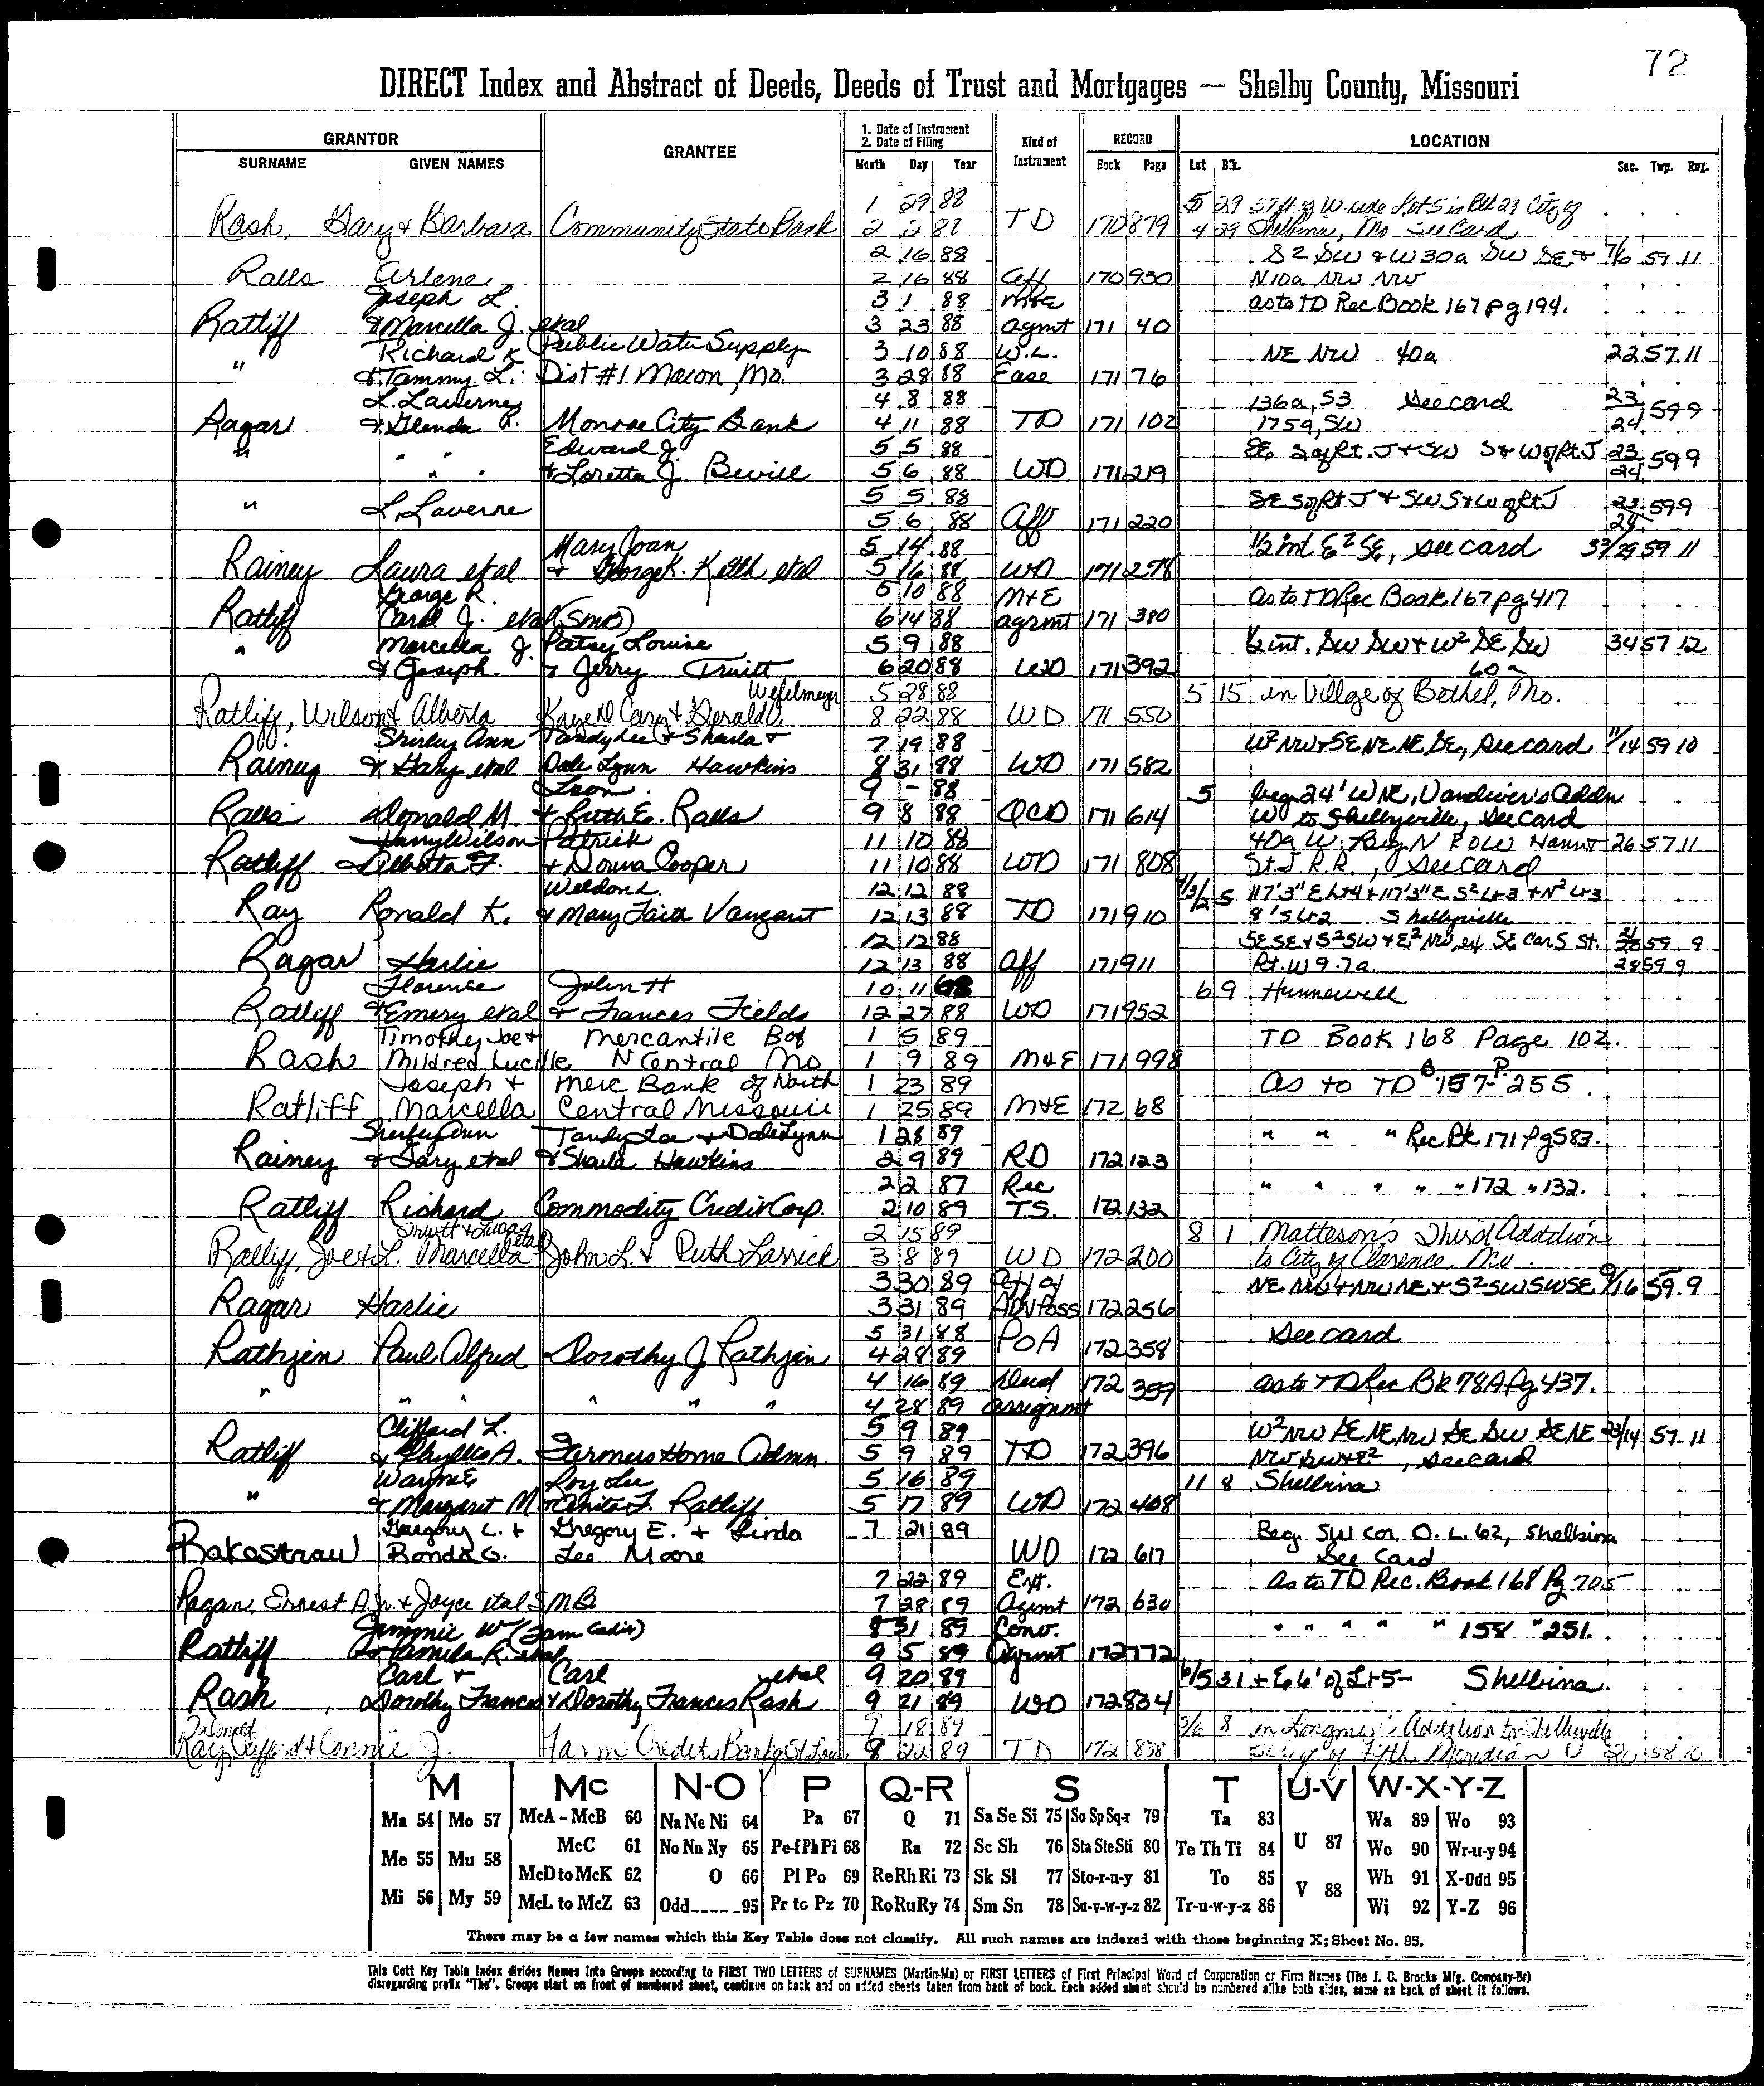 72
DIRECT Index and Abstract of Deeds, Deeds of Trust and Mortgages — Shelby County, Missouri
GRANTOR GRANTEE 1. Date of Instrument 2. Date of Filing Kind of Instrument RECORD LOCATION
SURNAME GIVEN NAMES Month Day Year Book Page Lot Blk. Sec. Twp. Rng.
1 29 88 5 29 57 ft of W side Lot 5 in Blk 29 City of
Rash, Gary & Barbara Community State Bank 2 2 88 TD 170 879 4 29 Shelbina, Mo See Card
2 16 88 S2 SW & W30a SW SE & 7/6 59 11
Ralls Arlene 2 16 88 Aff 170 930 N10a NW NW
Joseph L. 3 1 88 as to TD Rec Book 167 pg 194.
Ratliff & Marcella J. etal 3 23 88 agmt 171 40
Richard K Public Water Supply 3 10 88 W.L. NE NW 40a 22 57 11
" & Tammy L. Dist #1 Macon, Mo. 3 28 88 Ease 171 76
L. Laverne 4 8 88 136a, S3 See card 23
Ragar & Glenda R. Monroe City Bank 4 11 88 TD 171 102 175a, SW 24 59 9
" " " Edward J. 5 5 88 SE S of Rt. J & SW S & W of Rt J 23
& Loretta J. Bevill 5 6 88 WD 171 219 24 59 9
" L. Laverne 5 5 88 SE S of Rt J & SW S & W of Rt J 23 59 9
5 6 88 Aff 171 220 24
Mary Joan 5 14 88 1/2 int E2 SE, see card 59 11
Rainey Laura etal & George K. Keith etal 5 16 88 WD 171 278
George R. 5 10 88 M&E as to TD Rec Book 167 pg 417
Ratliff Carol J. etal (SMB) 6 14 88 agrmt 171 380
" Marcella J. Patsy Louise 5 9 88 1/2 int. SW SW & W2 SE SW 34 57 12
& Joseph. & Jerry Truitt 6 20 88 WD 171 392 60a
Wefelmeyer 5 28 88 5 15 in Village of Bethel, Mo.
Ratliff, Wilson & Alberta Kaye D Cary & Gerald 8 22 88 WD 171 550
Shirley Ann Tandy Lee & Sharla & 7 19 88 W2 NW & SE NE NE SE, see card 11/14 59 10
Rainey & Gary etal Dale Lynn Hawkins 8 31 88 WD 171 582
Leon 9 - 88 5 beg 24' W NE, Vandiver's Addn
Ralls Donald M. & Ruth E. Ralls 9 8 88 QCD 171 614 to Shelbyville, see Card
Harry Wilson Patrick 11 10 88 40a W. N ROW Hann & 26 57 11
Ratliff Alberta F. & Donna Cooper 11 10 88 WD 171 808 St. J R.R., see card
Weldon L. 12 12 88 5 117'3" E Lt 4 & 117'3" E S2 Lt 3 & N2 Lt 3
Ray Ronald K. & Mary Faith Vanzant 12 13 88 TD 171 910 8' S Lt 2 Shelbyville
12 12 88 SE SE & S2 SW & E2 NW, ex SE Cor S St. 59 9
Ragar Harlie 12 13 88 Aff 171 911 Rt. W 9.7a. 28 59 9
Florence John H 10 11 68 6 9 Hunnewell
Ratliff & Emery etal & Frances Fields 12 27 88 WD 171 952
Timothy Joe & Mercantile B of 1 5 89 TD Book 168 Page 102.
Rash Mildred Lucille N Central Mo 1 9 89 M&E 171 998
Joseph & Merc Bank of North 1 23 89 As to TD B 157 P 255
Ratliff Marcella Central Missouri 1 25 89 M&E 172 68
Shirley Ann Tandy Lee & Dale Lynn 1 28 89 " " " Rec Bk 171 Pg 583.
Rainey & Gary etal & Sharla Hawkins 2 9 89 RD 172 123
2 2 87 Rec " " " " " 172 " 132.
Ratliff Richard Commodity Credit Corp. 2 10 89 T.S. 172 132
Truitt & Lucas etal 2 15 89 8 1 Matteson's Third Addition
Ratliff, Joe & L. Marcella John L. & Ruth Lassick 3 8 89 WD 172 200 to City of Clarence, Mo.
3 30 89 Aff of NE NW & NW NE & S2 SW SW SE 9/16 59 9
Ragar Harlie 3 31 89 ADV Poss 172 256
5 31 88 See card
Rathjen Paul Alfred Dorothy J Rathjen 4 28 89 POA 172 358
4 16 89 Deed as to TD Rec Bk 78A Pg 437.
" " " " " " 4 28 89 assignmt 172 359
Clifford L. 5 9 89 W2 NW SE NE NW SE SW SE NE 23/14 57 11
Ratliff & Phyllis A. Farmers Home Admn. 5 9 89 TD 172 396 , see card
Wayne E Roy Lee 5 16 89 11 8 Shelbina
" & Margaret M & Anita F. Ratliff 5 17 89 WD 172 408
Gregory L. & Gregory E. & Linda 7 21 89 Beg. SW cor. O.L. 62, Shelbina
Rakestraw Ronda G. Lee Moore WD 172 617 See Card
7 22 89 Ext. As to TD Rec. Book 168 Pg 705
Ragan, Ernest A. Jr. & Joyce etal SMB 7 28 89 Agmt 172 630
Jimmie W (Farm Credit) 8 31 89 Conv. " " " " " 158 " 251.
Ratliff & Pamela K. etal 9 5 89 Agrmt 172 772
Carl & Carl etal 9 20 89 6/5 31 & E 6' of Lt 5- Shelbina
Rash, Dorothy Frances & Dorothy Frances Rash 9 21 89 WD 172 834
Donald 9 18 89 5/6 8 in Longmire's Addition to Shelbyville
Ray, Clifford & Connie J. Farm Credit Bank of St Louis 9 22 89 TD 172 838 of Fifth Meridian
M Mc N-O P Q-R S T U-V W-X-Y-Z
Ma 54 Mo 57 McA - McB 60 Na Ne Ni 64 Pa 67 Q 71 Sa Se Si 75 So Sp Sq-r 79 Ta 83 U 87 Wa 89 Wo 93
Me 55 Mu 58 McC 61 No Nu Ny 65 Pe-f Ph Pi 68 Ra 72 Sc Sh 76 Sta Ste Sti 80 Te Th Ti 84 We 90 Wr-u-y 94
McD to McK 62 O 66 Pl Po 69 Re Rh Ri 73 Sk Sl 77 Sto-r-u-y 81 To 85 V 88 Wh 91 X-Odd 95
Mi 56 My 59 McL to McZ 63 Odd 95 Pr to Pz 70 Ro Ru Ry 74 Sm Sn 78 Su-v-w-y-z 82 Tr-u-w-y-z 86 Wi 92 Y-Z 96
There may be a few names which this Key Table does not classify. All such names are indexed with those beginning X; Sheet No. 95.
This Cott Key Table Index divides Names Into Groups according to FIRST TWO LETTERS of SURNAMES (Martin-Ma) or FIRST LETTERS of First Principal Word of Corporation or Firm Names (The J. C. Brooks Mfg. Company-Br)
disregarding prefix "The". Groups start on front of numbered sheet, continue on back and on added sheets taken from back of book. Each added sheet should be numbered alike both sides, same as back of sheet it follows.